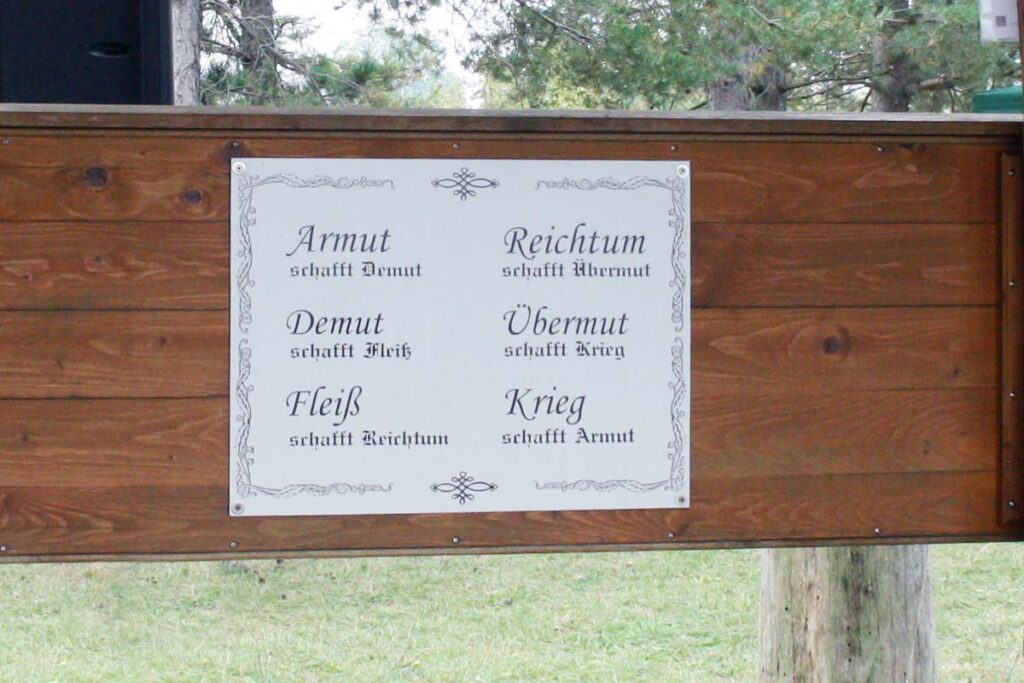 Armut
schafft Demut
Demut
schafft Fleiß
Fleiß
schafft Reichtum
Reichtum
schafft Übermut
Übermut
schafft Krieg
Krieg
schafft Armut